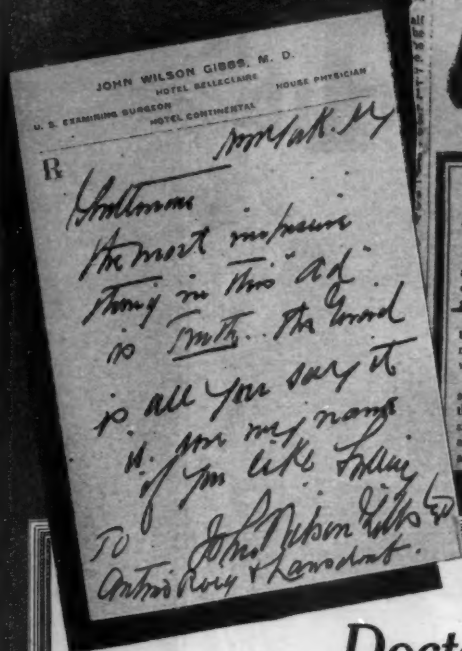 JOHN WILSON GIBBS, M. D.
HOTEL BELLECLAIRE
U. S. EXAMINING SURGEON HOUSE PHYSICIAN
HOTEL CONTINENTAL
R
New York. NY
Gentlemen
the most impressive
thing in this "Ad"
is Truth.. the
is all you say it
is. use my name
if you like
John Wilson Gibbs MD
TO
Lansdowt.
Doct